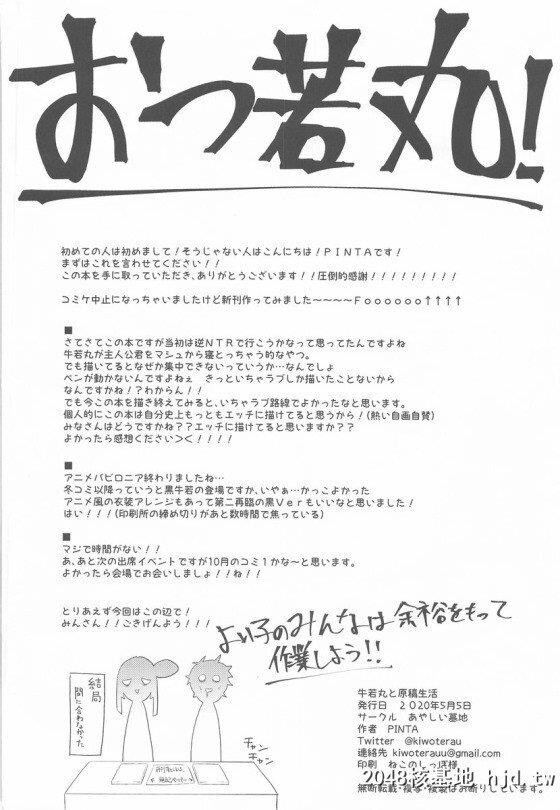 おつ若丸!
初めての人は初めまして!そうじゃない人はこんにちは!PINTAです!
まずはこれを言わせてください!!
この本を手に取っていただき、ありがとうございます!!圧倒的感謝!!!!!!!!!
コミケ中止になっちゃいましたけど新刊作ってみました~~~~Foooooo↑↑↑↑
■
さてさてこの本ですが当初は逆NTRで行こうかなって思ってたんですよね
牛若丸が主人公君をマシュから寝とっちゃう的なやつ。
でも描いてるとなぜか集中できないっていうか…なんでしょ
ペンが動かないんですよねぇ きっといちゃラブしか描いたことないから
なんですかね!?わからん!!
でも今この本を描き終えてみると、いちゃラブ路線でよかったなと思います。
個人的にこの本は自分史上もっともエッチに描けてると思うから!(熱い自画自賛)
みなさんはどうですかね??エッチに描けてると思いますか??
よかったら感想ください><!!!!
■
アニメバビロニア終わりましたね…
冬コミ以降っていうと黒牛若の登場ですか、いやぁ…かっこよかった
アニメ風の衣装アレンジもあって第二再臨の黒Verもいいなと思いました!
はい!!!(印刷所の締め切りがあと数時間で焦っている)
■
マジで時間がない!!
あ、あと次の出席イベントですが10月のコミ1かな~と思います。
よかったら会場でお会いしましょ!!ね!!
とりあえず今回はこの辺で!
みんさん!!ごきげんよう!!!
よい子のみんなは余裕をもって
作業しよう!!
結局
間に合わなかった
チャン
チャン
牛若丸と原稿生活
発行日 2020年5月5日
サークル あやしい墓地
作者 PINTA
Twitter @kiwoterau
連絡先 kiwoterauu@gmail.com
印刷 ねこのしっぽ様
無断転載・複写・複製はお断りしています。
2048核基地 hjd.tw